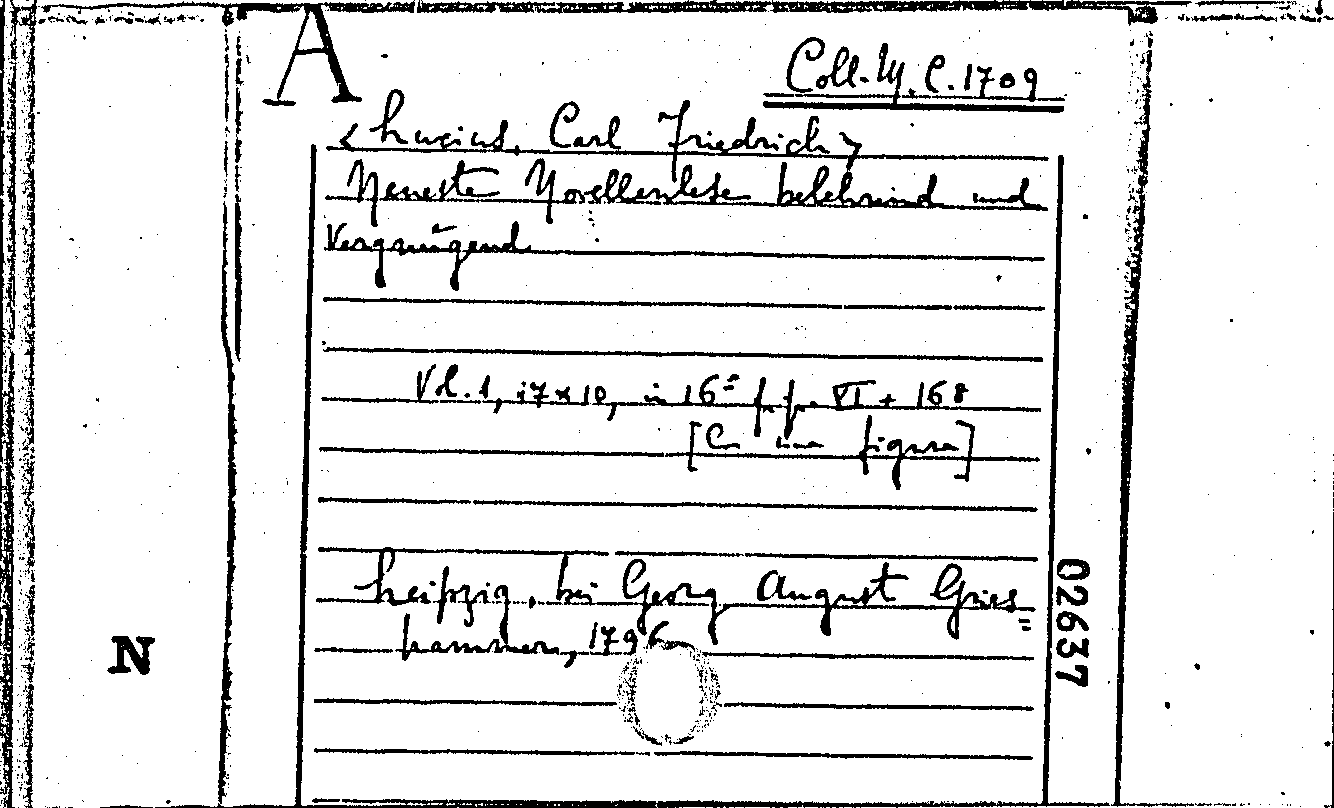 A
Coll. M. C. 1709
<Lucius, Carl Friedrich>
Neueste Novellenlese belehrend und
Vergnügend
Vol. 1, 17 x 10, in 16º f. p. VI + 168
[Con una figura]
Leipzig, bei Georg August Gries=
hammer, 1796
N
02637